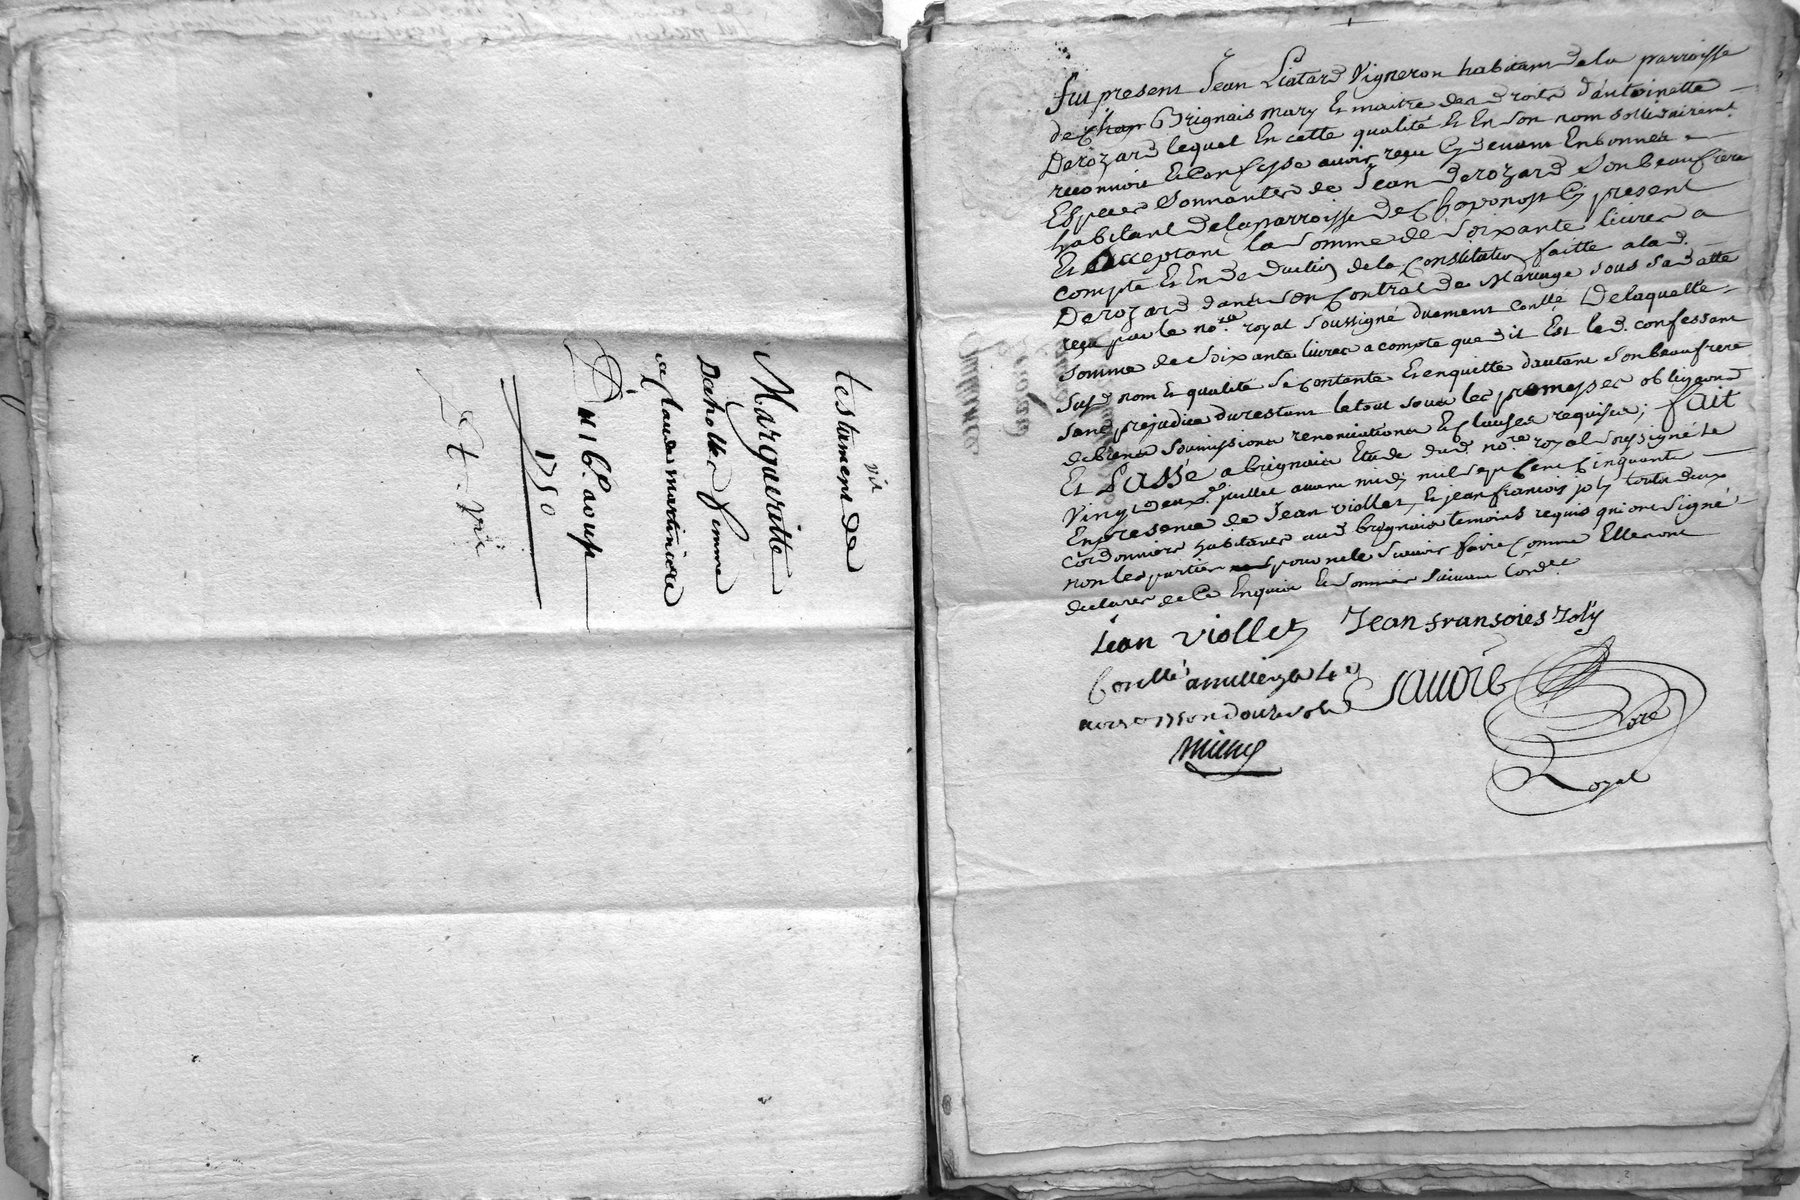 vit
testament de
Margueritte
Dasholles femme
a Claude martiniere
Du 16e. aoust
1750
Et. vit
Fut present Jean Liatard Vigneron habitant de la parroisse
de Chap Brignais mary Et maitre des droits d'antoinette
Derozard lequel En cette qualité Et En son nom sollidairement
reconnoit Et Confesse avoir reçu Cy devant En bonnes
Especes Sonnantes de Jean Derozard Son beaufrere
habitant de la parroisse de Chaponost Cy present
Et Acceptant la somme de soixante livres a
compte Et En deduction de la Constitution faitte a lad.
Derozard dans son Contrat de Mariage sous sa datte
reçu par le nore. royal soussigné duement conllé Delaquelle
somme de soixante livres a compte que dit Est led. confessant
susd nom Et qualité se contente Et enquitte d'autant Son beaufrere
sans prejudice du restant le tout sous les promesses obligaons
de biens soumissions renonciations Et clauses requises; fait
Et Passé a brignais Etude dud. nore. royal soussigné Le
Vingt deuxe. juillet avant midy mil sept Cent Cinquante
En presence de Jean viollet, Et jean francois joly touts deux
cordonniers habitants aud brignais temoins requis qui ont signé
non les parties pour ne le scavoir faire Comme Elles ont
declarer de Ce Enquis Et sommés suivant L'ordce
jean viollet Jean fransoies Joly
Conllé a millery le 4e
aoust 1750 R douze sols
Sauvoie
Nore
Royal